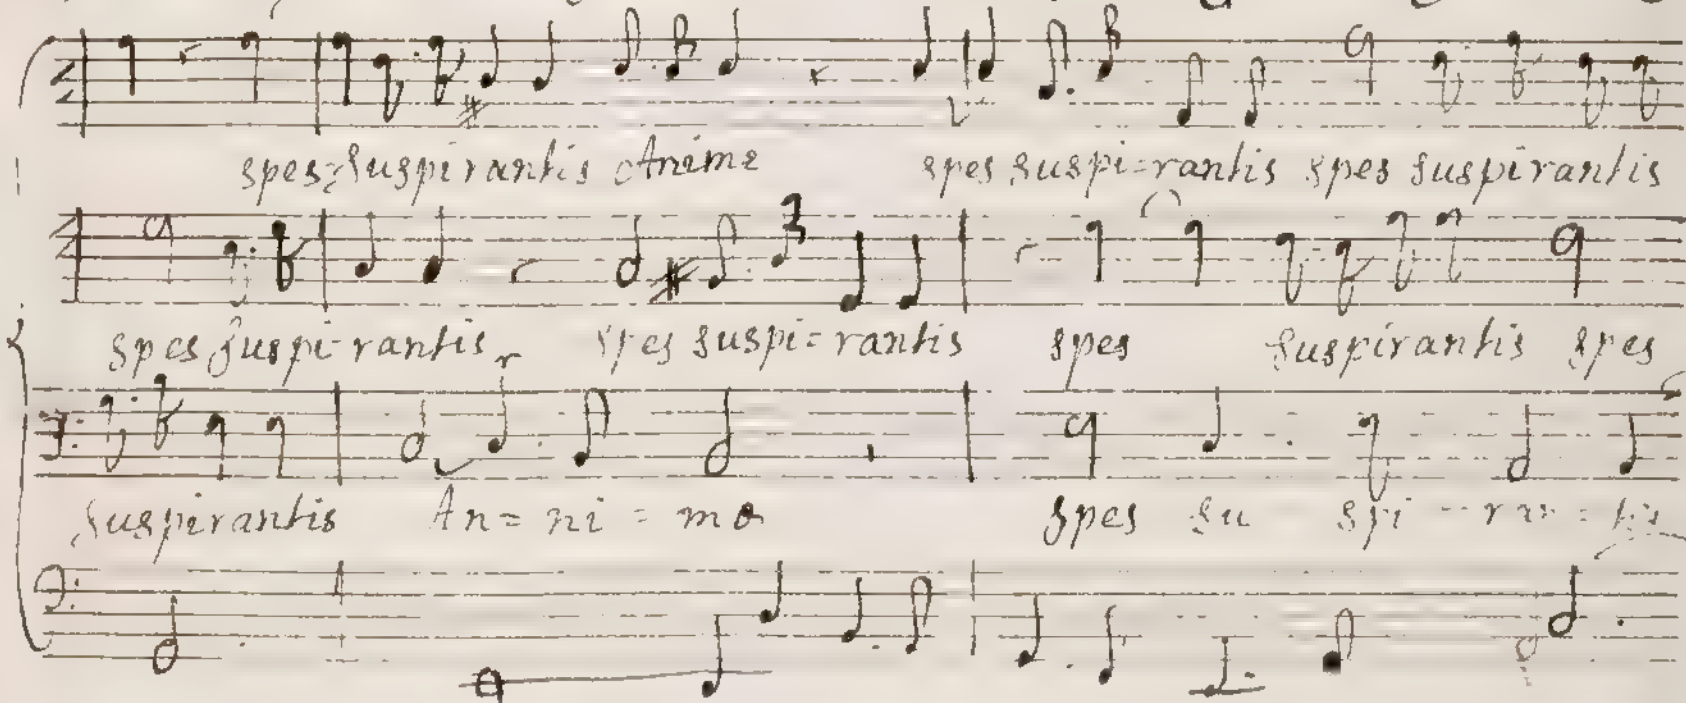 spes suspirantis Anime spes suspi=rantis spes suspirantis
spes suspi-rantis spes suspi=rantis spes suspirantis spes
suspirantis An=ni=me spes su spi--ran=tis